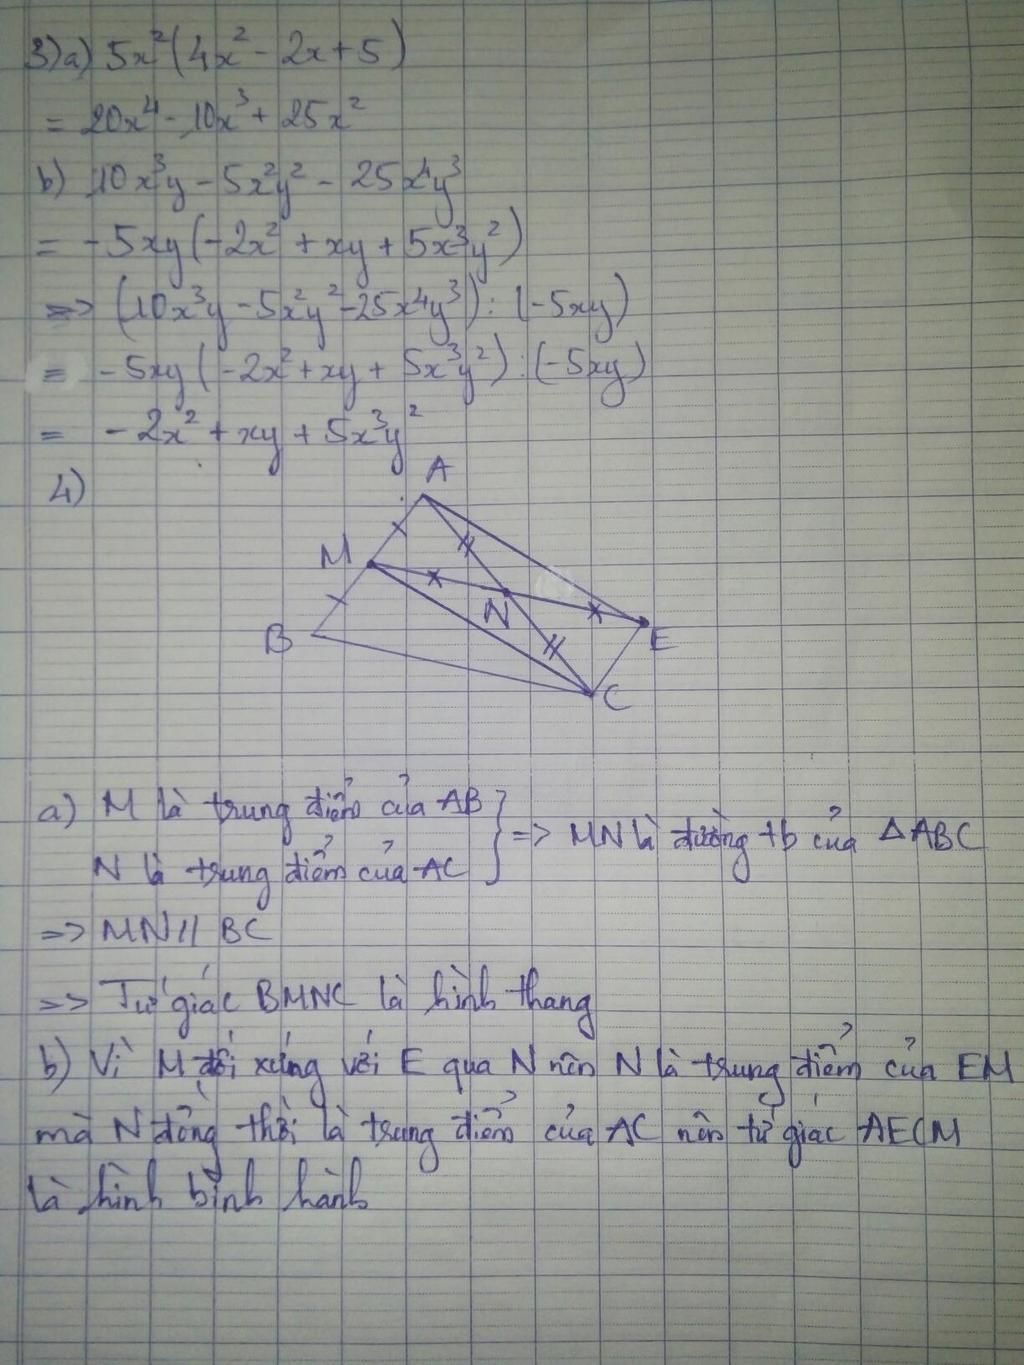 3) a) 5x²(4x² - 2x + 5)
= 20x⁴ - 10x³ + 25x²
b) 10x³y - 5x²y² - 25x⁴y³
= -5xy(-2x² + xy + 5x³y²)
=> (10x³y - 5x²y² - 25x⁴y³) : (-5xy)
= -5xy(-2x² + xy + 5x³y²) : (-5xy)
= -2x² + xy + 5x³y²
4)
A
M
N
B
E
C
a) M là trung điểm của AB
N là trung điểm của AC } => MN là đường tb của ΔABC
=> MN // BC
=> Tứ giác BMNC là hình thang
b) Vì M đối xứng với E qua N nên N là trung điểm của EM
mà N đồng thời là trung điểm của AC nên tứ giác AECM
là hình bình hành